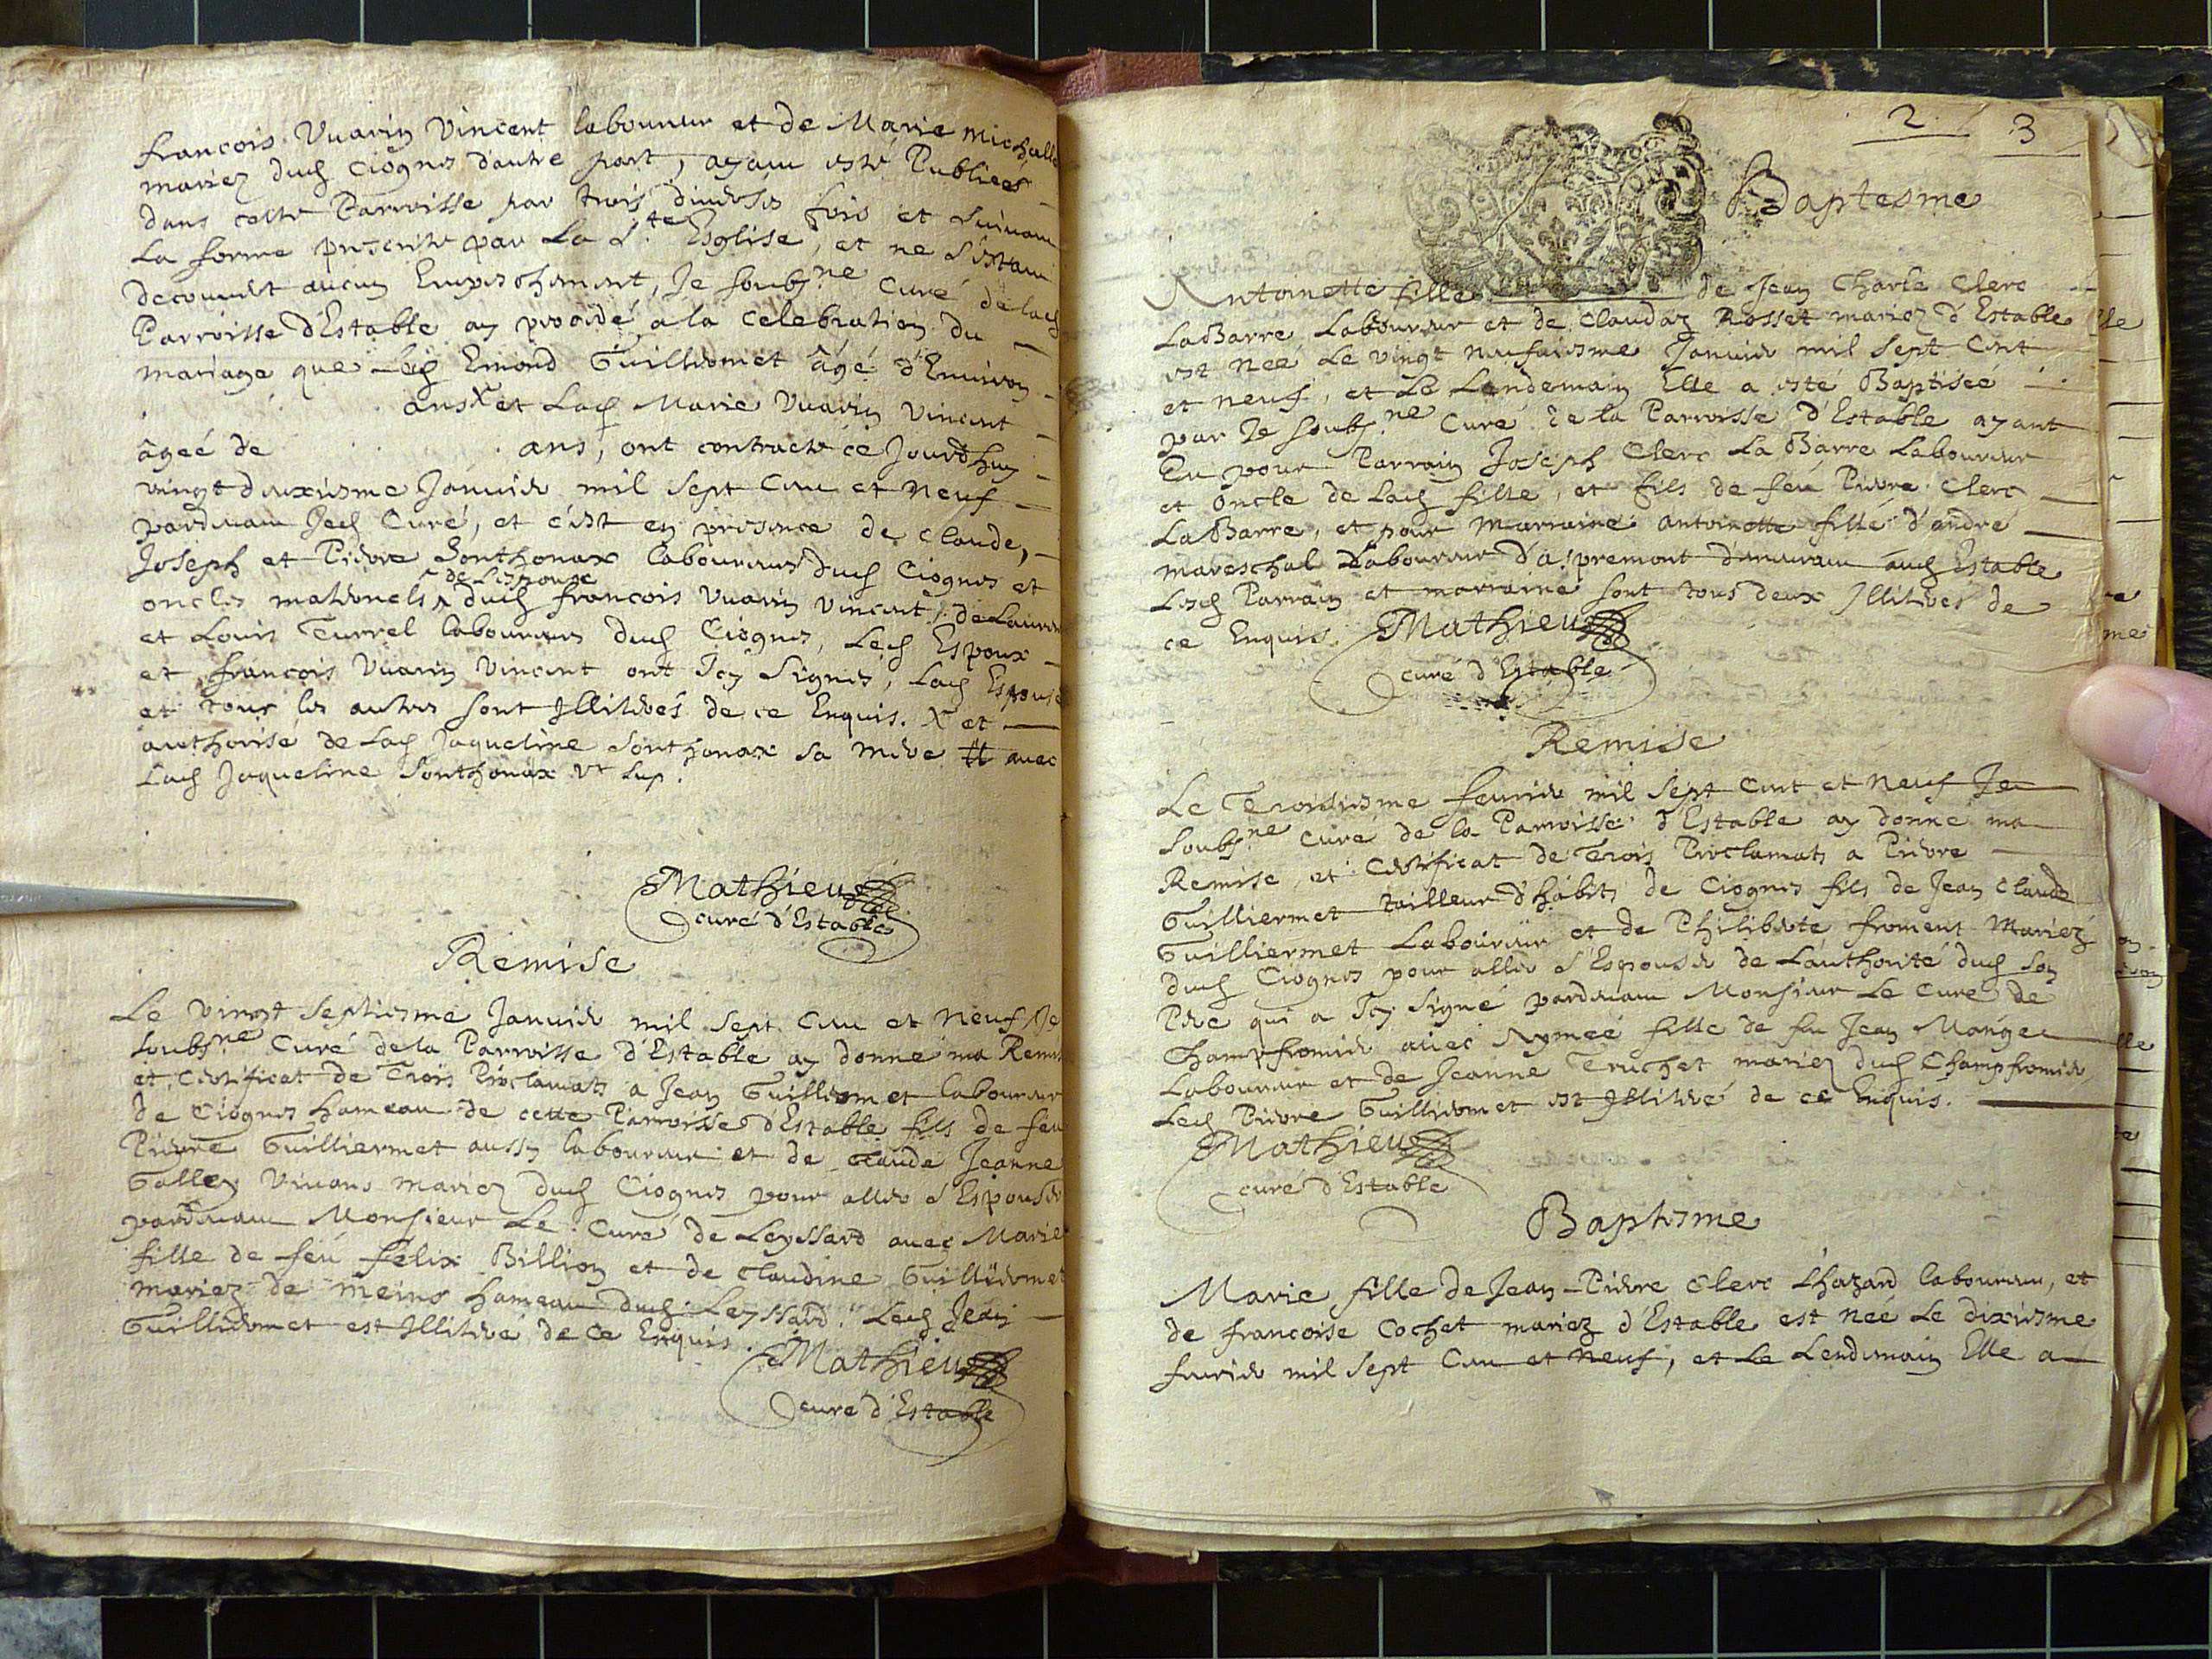 francois Vuarin Vincent laboureur et de Marie Michalle
mariez dud Ciognes d'autre part, ayant esté Publiees
dans cette Parroisse par trois diverses fois et suivant
La forme prescrite par La S.te Esglise, et ne s'estant
decouvert aucun Empeschement, Je soubs.ne Curé de lad
Parroisse d'Estable ay procédé a la celebration du
mariage que led Emond Guilliermet âgé d'Environ
ans X et Lad Marie Vuarin Vincent
âgeé de ans, ont contracté ce Jourd'huy
vingt deuxiesme Janvier mil sept Cent et Neuf
pardevant Jed Curé, et c'est en presence de Claude,
Joseph et Pierre Sonthonax laboureurs dud Ciognes et
de L'espouse
oncles maternels dud francois Vuarin Vincent, de Laurent
et Louis Turrel laboureurs dud Ciognes, Led Espoux
et francois Vuarin Vincent ont Icy Signés, Lad Espouse
et tous les autres sont Illiterés de ce Enquis. X et
authorisé de Lad Jaqueline Sonthonax sa mere # avec
Lad Jaqueline Sonthonax vt sup.
Mathieu
curé d'Estable
Remise
Le vingt septiesme Janvier mil sept Cent et Neuf Je
soubs.ne Curé de la Parroisse d'Estable ay donné ma Remise
et Certificat de Trois Proclamats a Jean Guilliermet laboureur
de Ciognes hameau de cette Parroisse d'Estable fils de feu
Pierre Guilliermet aussy laboureur et de Claude Jeanne
Galley Vivans mariez dud Ciognes pour aller s'Espouser
pardevant Monsieur Le Curé de Leyssard avec Marie
fille de feu félix Billion et de Claudine Guilliermet
mariez de meins hameau dud Leyssard. Led Jean
Guilliermet est Illiteré de ce Enquis.
Mathieu
curé d'Estable
2 3
Baptesme
Antoinette fille de Jean Charle Clerc
LaBarre Laboureur et de Claudaz Rosset mariez d'Estable
est neé Le vingt neufuiesme Janvier mil sept Cent
et neuf, et Le Lendemain Elle a esté Baptiseé
par Je soubs.ne Curé de la Parroisse d'Estable ayant
Eu pour Parrain Joseph Clerc La Barre Laboureur
et oncle de lad fille, et fils de feu Pierre Clerc
LaBarre, et pour Marraine antoinette fille d'andré
mareschal Laboureur d'aspremont demeurant aud Estable
Lesd Parrain et marraine sont tous deux Illiterés de
ce Enquis. Mathieu
curé d'Estable
Remise
Le Troisiesme fevrier mil sept Cent et Neuf Je
soubs.ne Curé de la Parroisse d'Estable ay donné ma
Remise, et Certificat de Trois Proclamats a Pierre
Guilliermet tailleur d'habits de Ciognes fils de Jean Claude
Guilliermet Laboureur et de Philiberte froment Mariez
dud Ciognes pour aller s'Espouser de L'authorité dud son
Pere qui a Icy Signé pardevant Monsieur Le Curé de
Champfromier avec Aymeé fille de feu Jean Mangé
Laboureur et de Jeanne Truchet mariez dud Champfromier
Led Pierre Guilliermet est Illiteré de ce Enquis.
Mathieu
curé d'Estable
Baptesme
Marie fille de Jean-Pierre Clerc L'hazard laboureur, et
de francoise Cochet mariez d'Estable est neé Le dixiesme
fevrier mil sept Cent et Neuf, et Le Lendemain Elle a